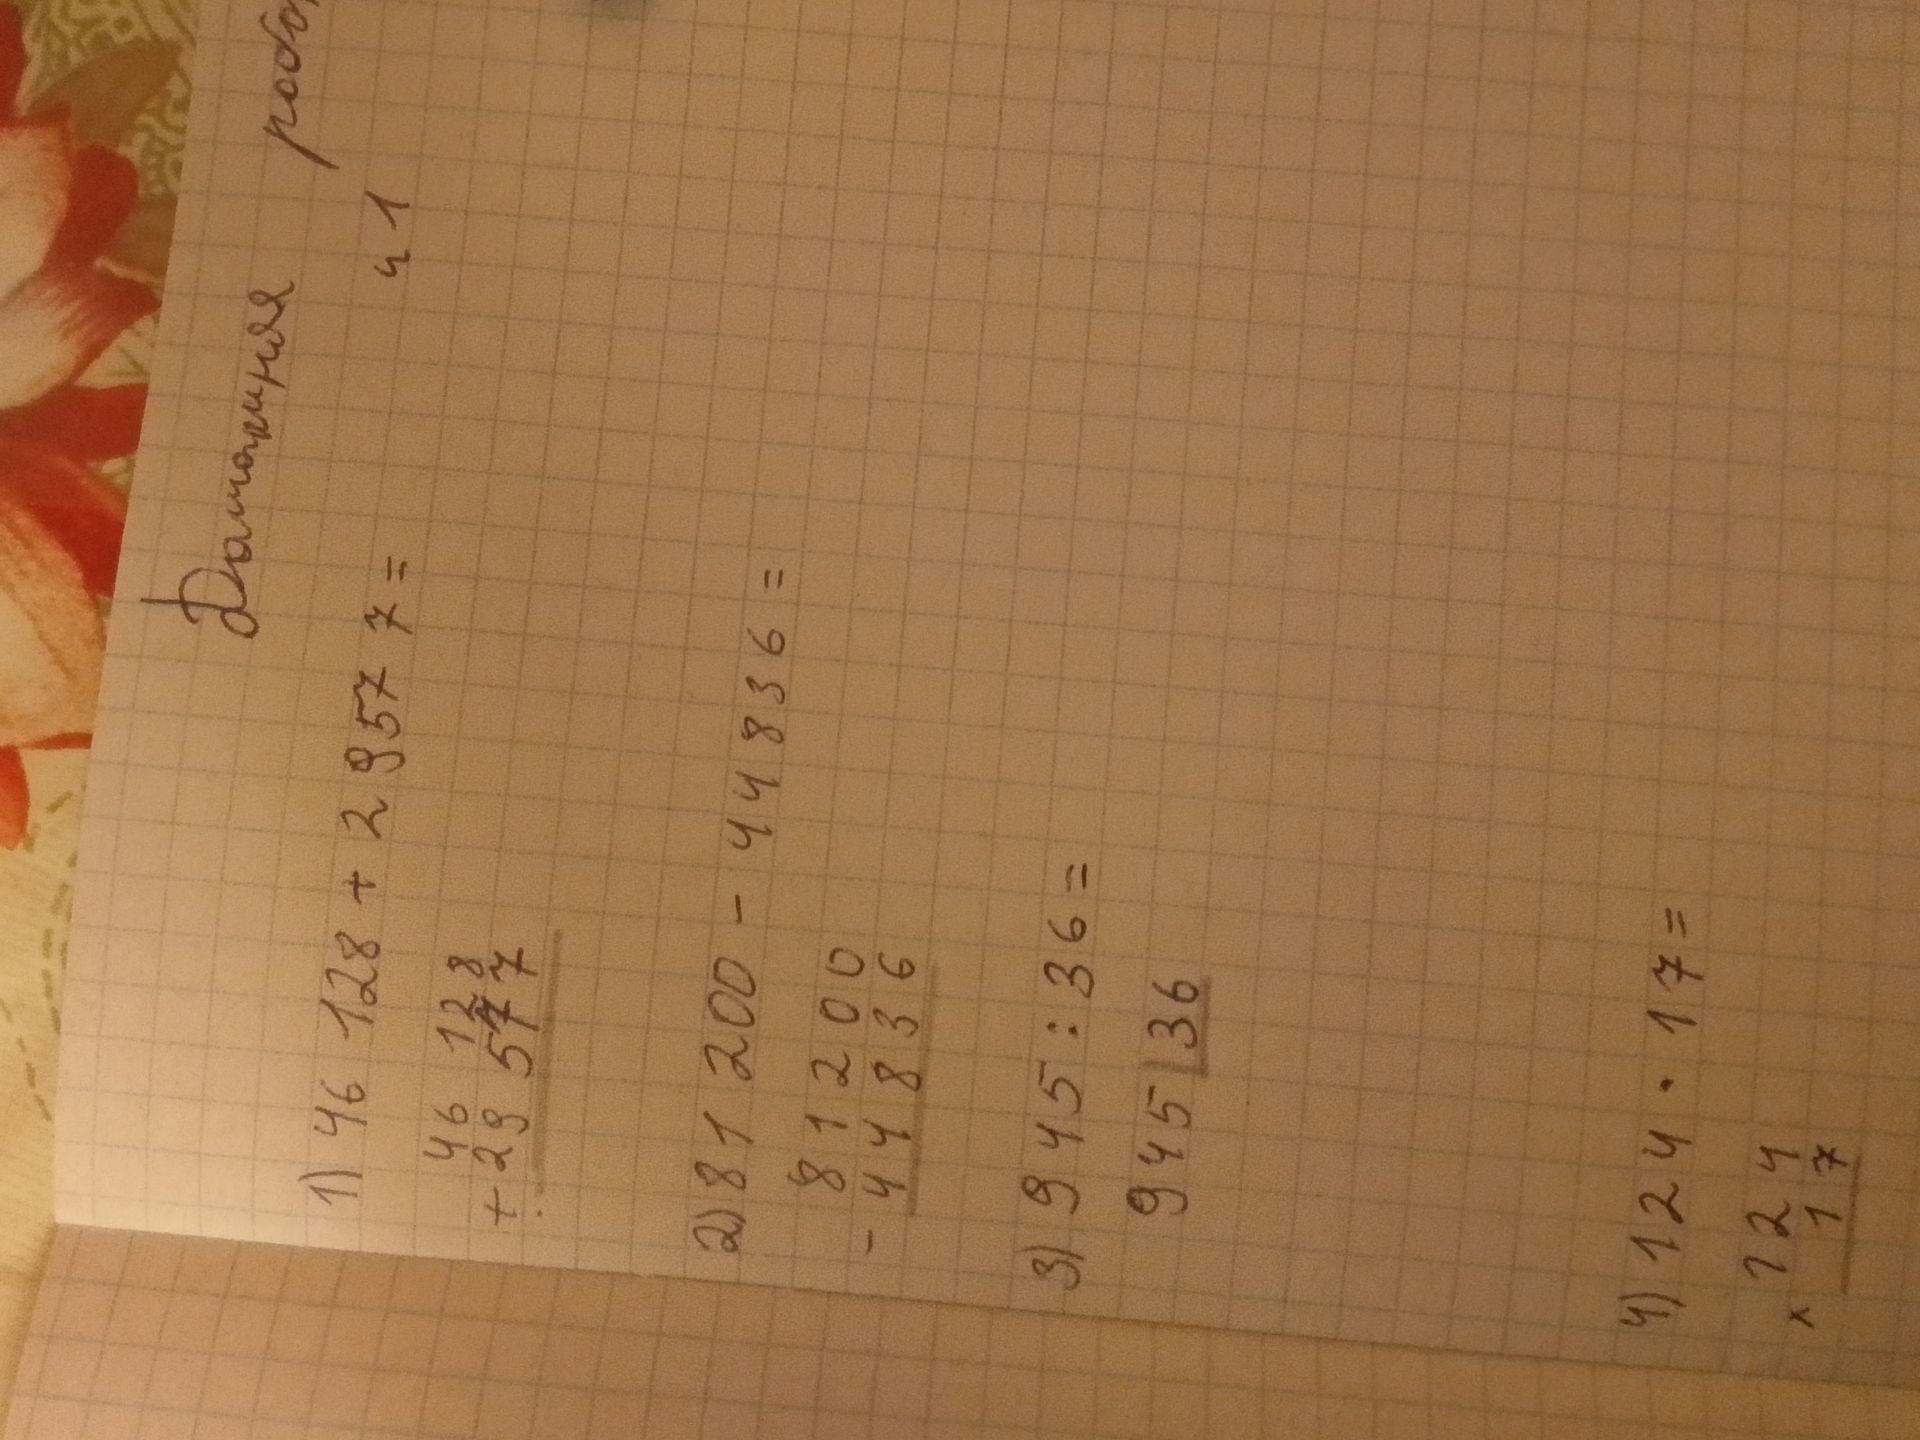 Домашняя
ч 1
1) 46 128 + 29577=
46 128
+29 577
2) 81 200 - 44836=
81200
- 44836
3) 945 : 36=
945 | 36
4) 124 · 17=
124
× 17